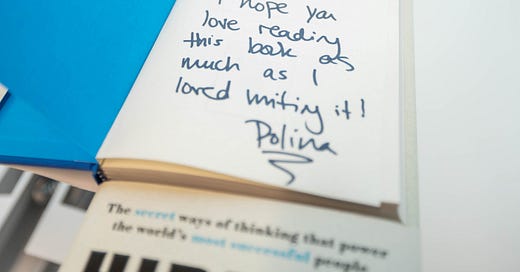 I hope you
love reading
this book as
much as I
loved writing it!
Polina
The secret ways of thinking that power
the world's most successful people